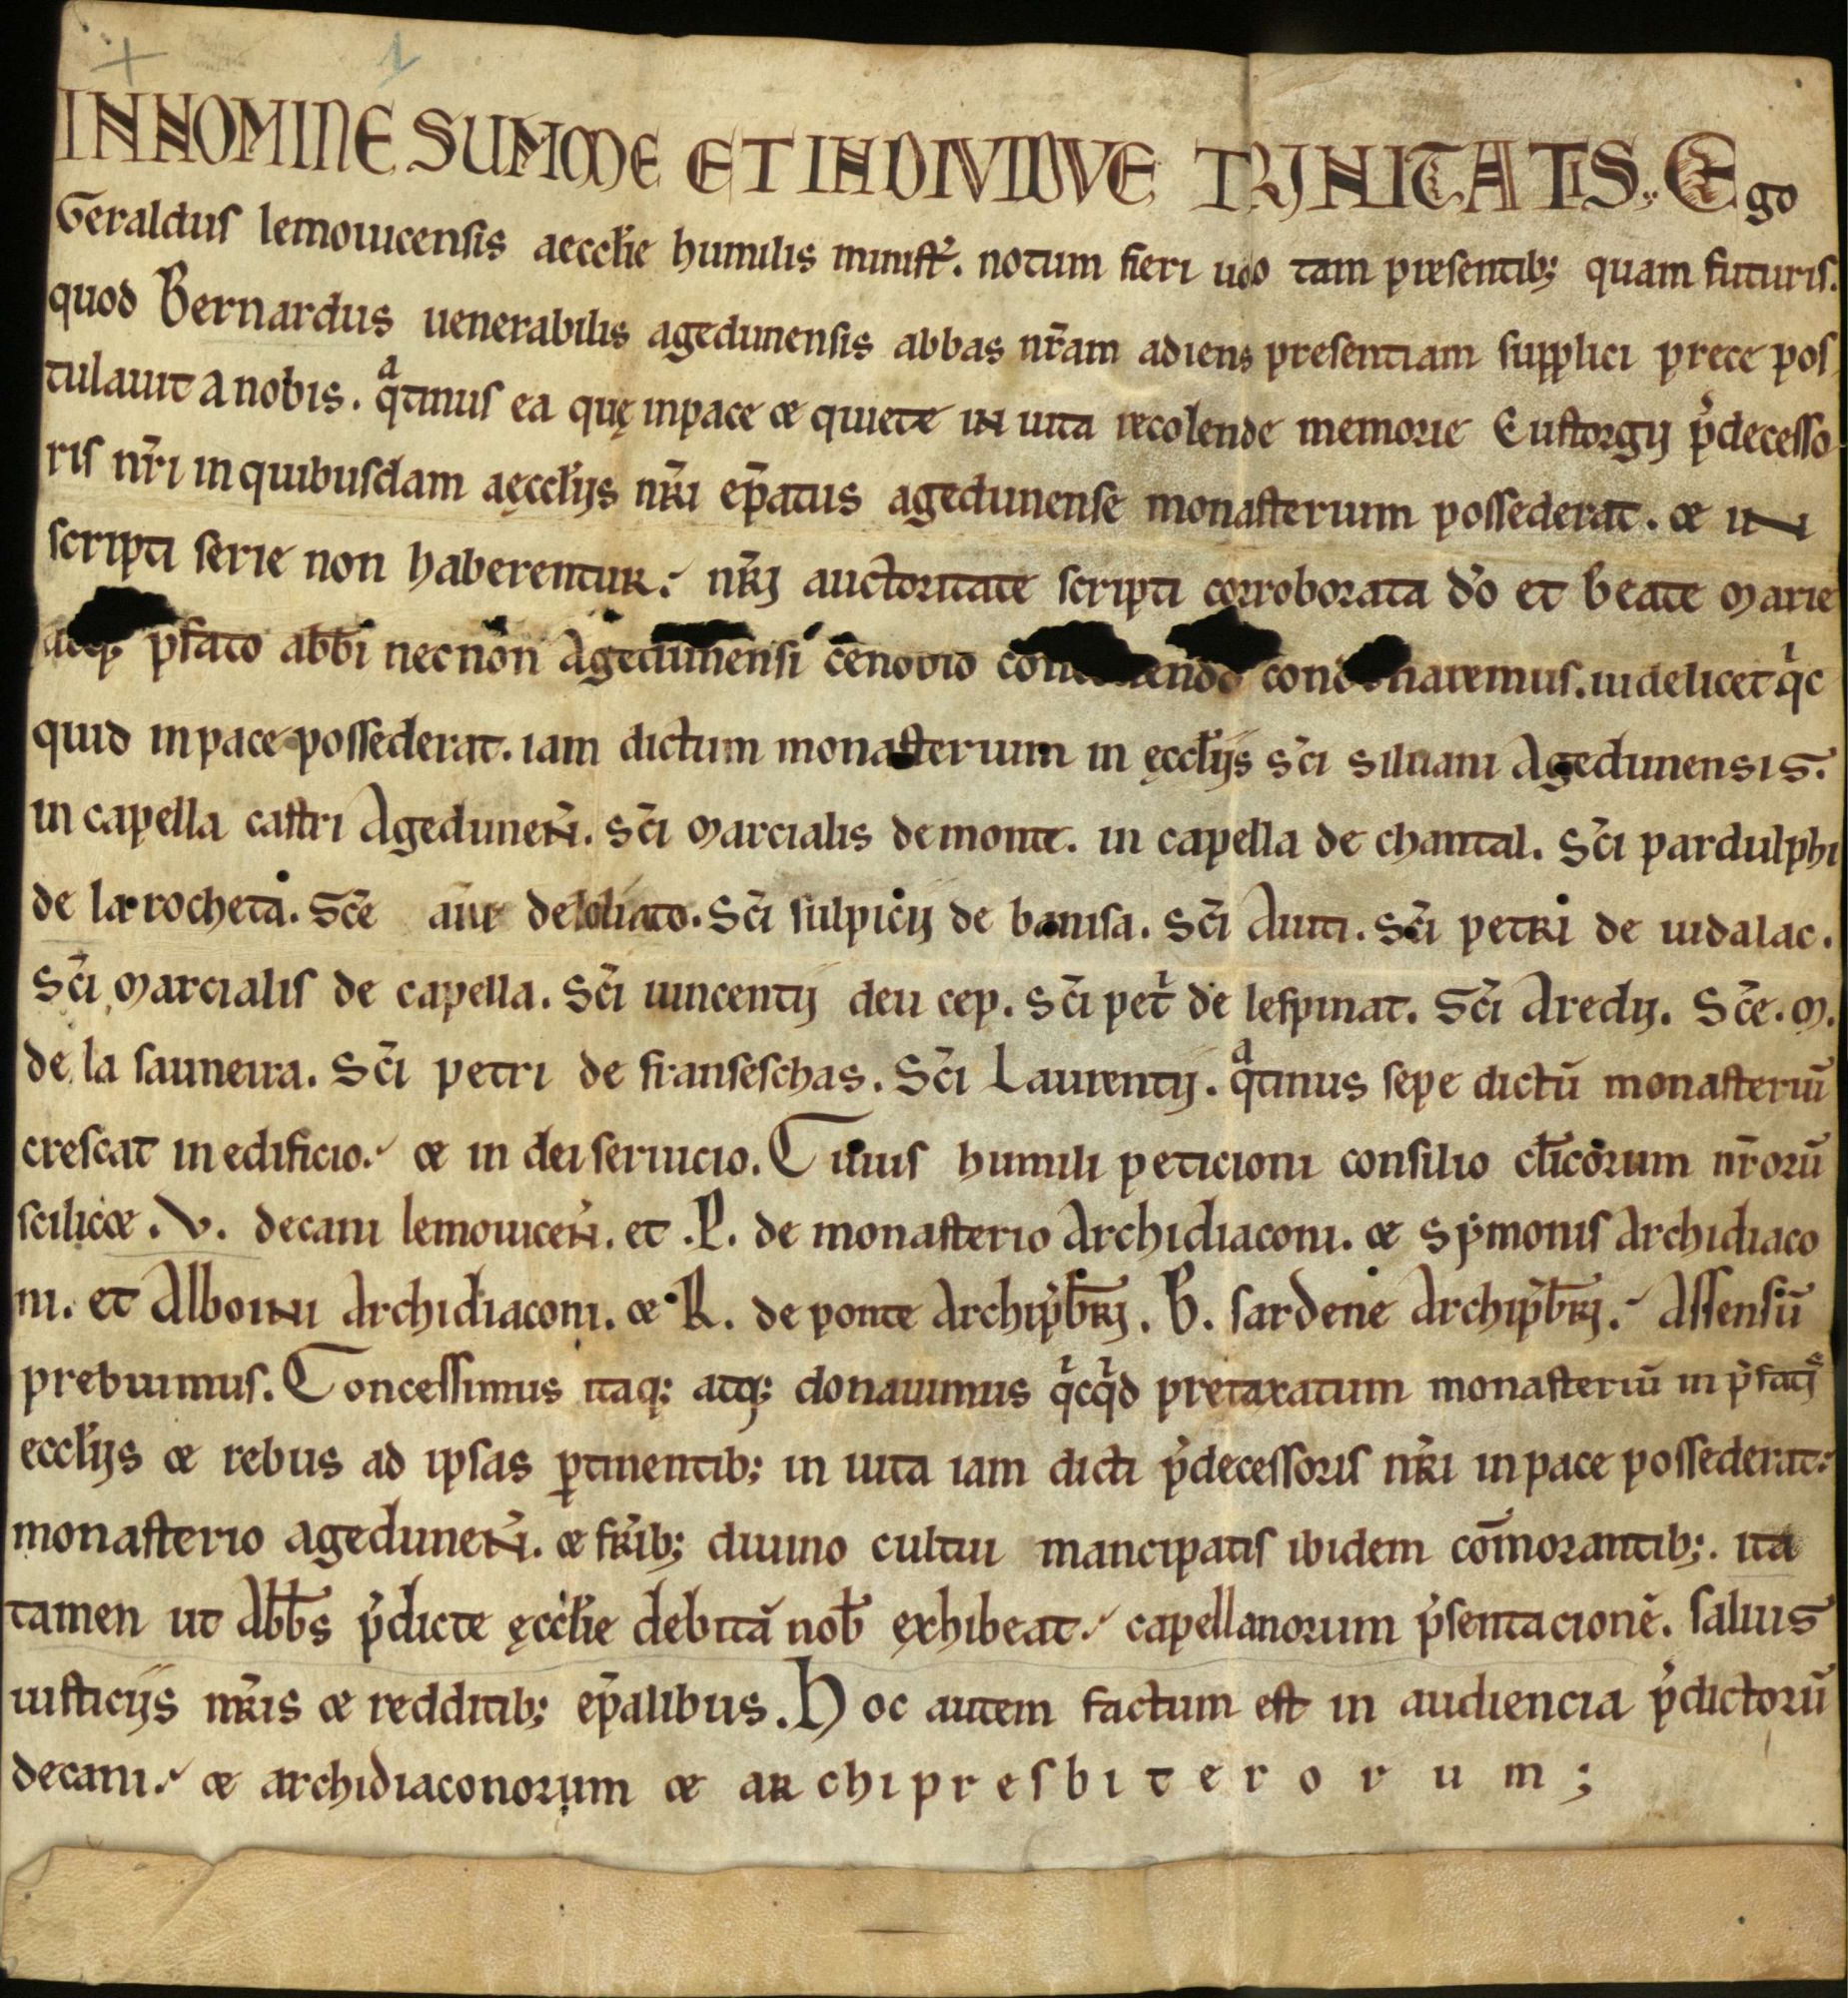 IN NOMINE SUMME ET INDIVIDVE TRINITATIS. Ego
Geraldus lemouicensis aeccłie humilis minist̉. notum fieri uolo tam presentib; quam futuris.
quod Bernardus uenerabilis agedunensis abbas nr̄am adiens presentiam supplici prece pos
tulauit a nobis. qͣtinus ea quę inpace & quiete in uita recolende memorie Eustorgij p̉decesso
ris nr̄i in quibusdam aęccłijs nr̄i ep̄atus agedunense monasterium possederat. & in
scripti serie non haberentur. nr̄j auctoritate scripti corroborata d̉o et beate Marie
atq; p̉fato abb̄i necnon Agedunensi cenobio condonaremus. uidelicet qͥc
quid inpace possederat. iam dictum monasterium in ęccłijs sc̄i siluani Agedunensis.
in capella castri Agedunen̉. Sc̄i Marcialis demonte. in capella de chantal. Sc̄i pardulphi
de la rocheta. Sc̄e de Sc̄i sulpicij de banisa. Sc̄i Auiti. Sc̄i petri de uidalac.
Sc̄i Marcialis de capella. Sc̄i uincentij deu cep. Sc̄i pet̉ de lespinat. Sc̄i Aredij. Sc̄e. M.
de la sauneira. Sc̄i petri de franseschas. Sc̄i Laurentij. qͣtinus sepe dictū monasteriū
crescat in edificio. & in dei seruicio. Cuius humili peticioni consilio cłicorum nr̄orū
scilic& . V. decani lemouicen̉. et .P. de monasterio Archidiaconi. & Symonis Archidiaco
ni. et Alboini Archidiaconi. & R. de ponte Archip̉br̄j. B. sardene Archip̉br̄j. Assensū
prebuimus. Concessimus itaq; atq; donauimus qͥcqͥd pretaxatum monasteriū in p̉fatis
eccłijs & rebus ad ipsas ꝑtinentib; in uita iam dicti p̉decessoris nr̄i inpace possederat.
monasterio agedunen̉. & fr̄ib; diuino cultui mancipatis ibidem com̄orantib;. ita
tamen ut Abb̄s p̉dicte ęccłie debitā nob̄ exhibeat. capellanorum p̉sentacionē. saluis
iusticijs nr̄is & redditib; ep̄alibus. Hoc autem factum est in audiencia p̉dictorū
decani. & archidiaconorum & archipresbiterorum;